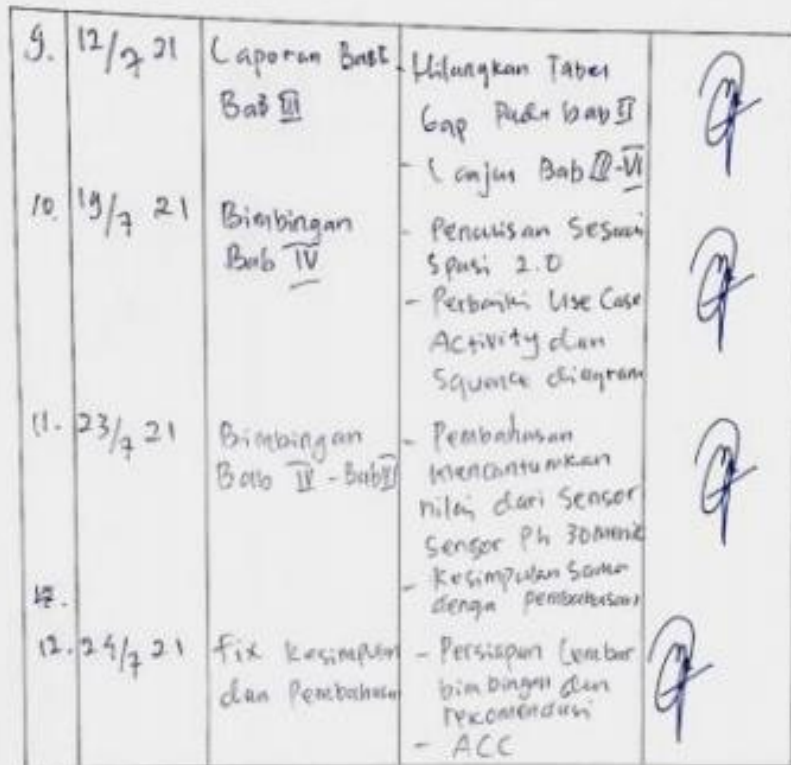 9. 12/7 21 Laporan Bab I - Hilangkan Tabel
Bab III Gap Pada bab II
- Lanjut Bab III-VI
10. 19/7 21 Bimbingan - Penulisan Sesuai
Bab IV Spasi 2.0
- Perbaiki Use Case
Activity dan
Squance diagram
11. 23/7 21 Bimbingan - Pembahasan
Bab IV - Bab mencantumkan
nilai dari Sensor
Sensor Ph 30 menit
- Kesimpulan Sama
12. denga pembahasan
12. 24/7 21 Fix Kesimpulan - Persiapan Lembar
dan Pembahasan bimbingan dan
rekomendasi
- ACC